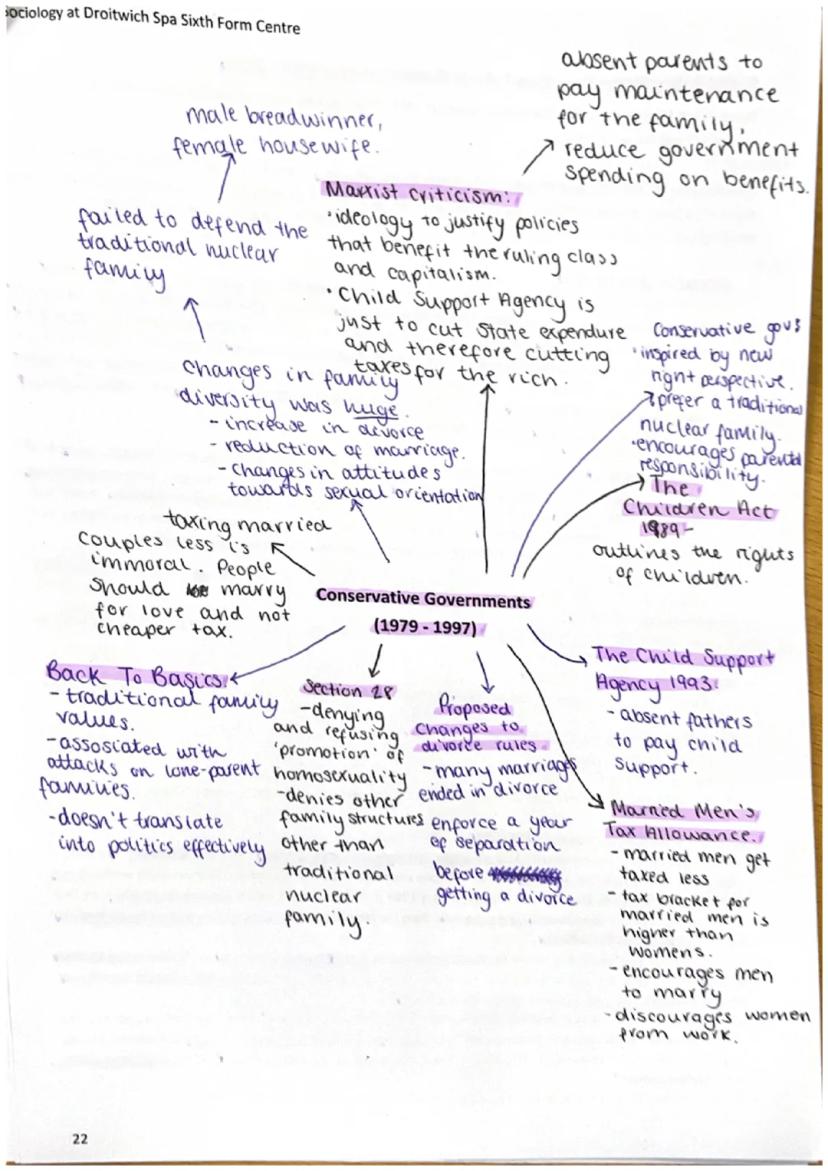 Sociology at Droitwich Spa Sixth Form Centre
absent parents to
pay maintenance
for the family,
reduce government
spending on benefits.
male breadwinner,
female housewife.
failed to defend the
traditional nuclear
family
Marxist criticism:
• ideology to justify policies
that benefit the ruling class
and capitalism.
• Child Support Agency is
just to cut State expendure
and therefore cutting
taxes for the rich.
Conservative govs
• inspired by new
right perspective.
• prefer a traditional
nuclear family.
• encourages parental
responsibility.
changes in family
diversity was huge.
- increase in divorce
- reduction of marriage.
- changes in attitudes
towards sexual orientation
The
Children Act
1989 -
outlines the rights
of children.
- taxing married
couples less is
immoral. People
should marry
for love and not
cheaper tax.
Conservative Governments
(1979 - 1997)
Back To Basics:
- traditional family
values.
- assosiated with
attacks on lone-parent
families.
- doesn't translate
into politics effectively
Section 28
- denying
and refusing
'promotion' of
homosexuality
- denies other
family structures
other than
traditional
nuclear
family.
Proposed
Changes to
divorce rules.
- many marriages
ended in divorce
enforce a year
of separation
before
getting a divorce
The Child Support
Agency 1993:
- absent fathers
to pay child
support.
Married Men's
Tax Allowance.
- married men get
taxed less
- tax bracket for
married men is
higher than
womens.
- encourages men
to marry
- discourages women
from work.
22